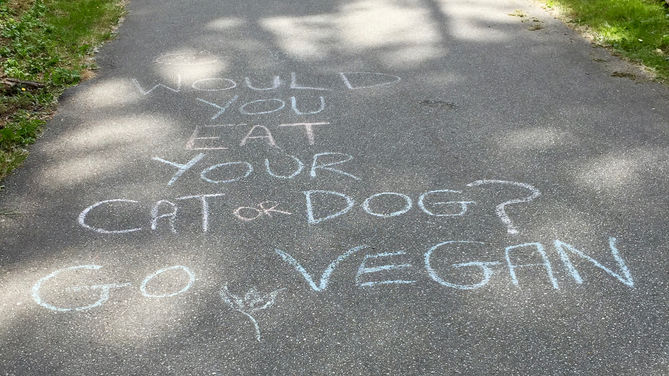 WOULD
YOU
EAT
YOUR
CAT OR DOG?
GO VEGAN